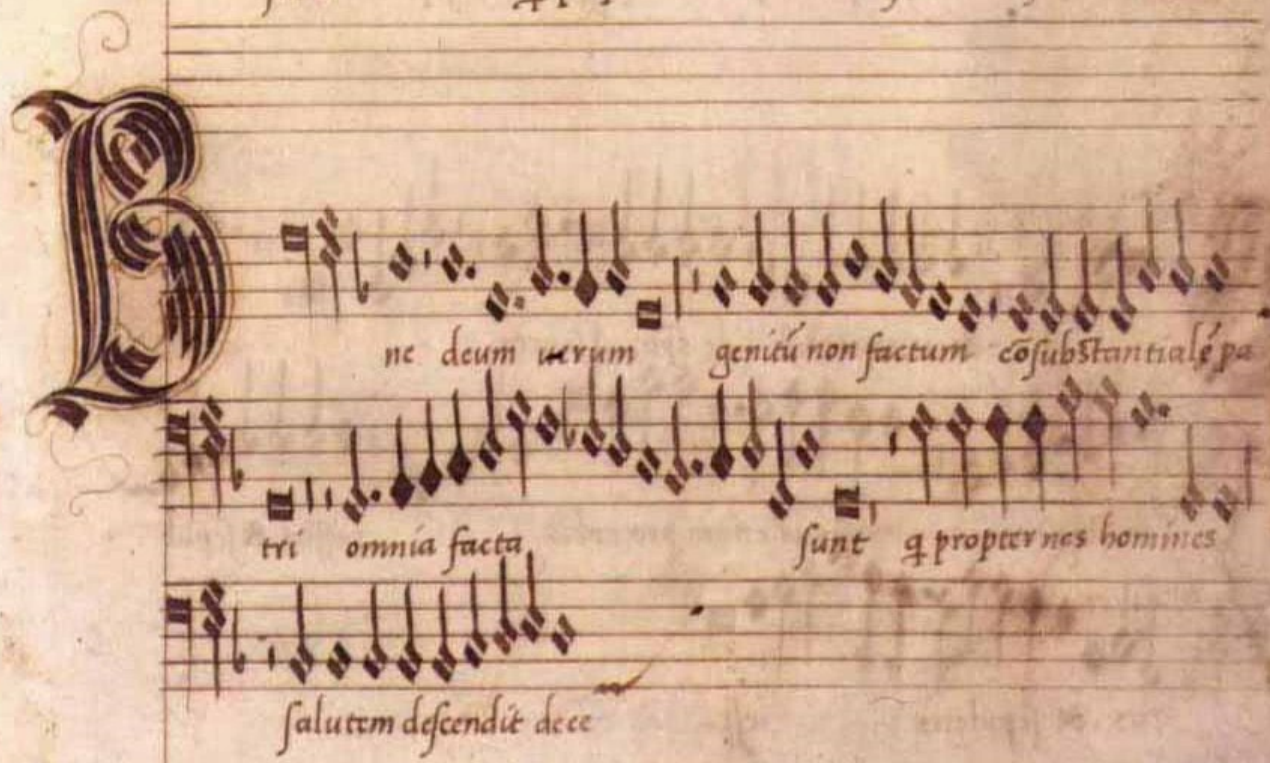 B
ne deum uerum genitū non factum cōsubstantialē pa
tri omnia facta sunt q propter nos homines
salutem descendit dece